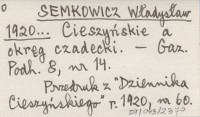 o
SEMKOWICZ Władysław
1920... Cieszyńskie a
okręg czadecki. — Gaz.
Podh. 8, nr 14.
Przedruk z "Dziennika
Cieszyńskiego" r. 1920, nr 60.